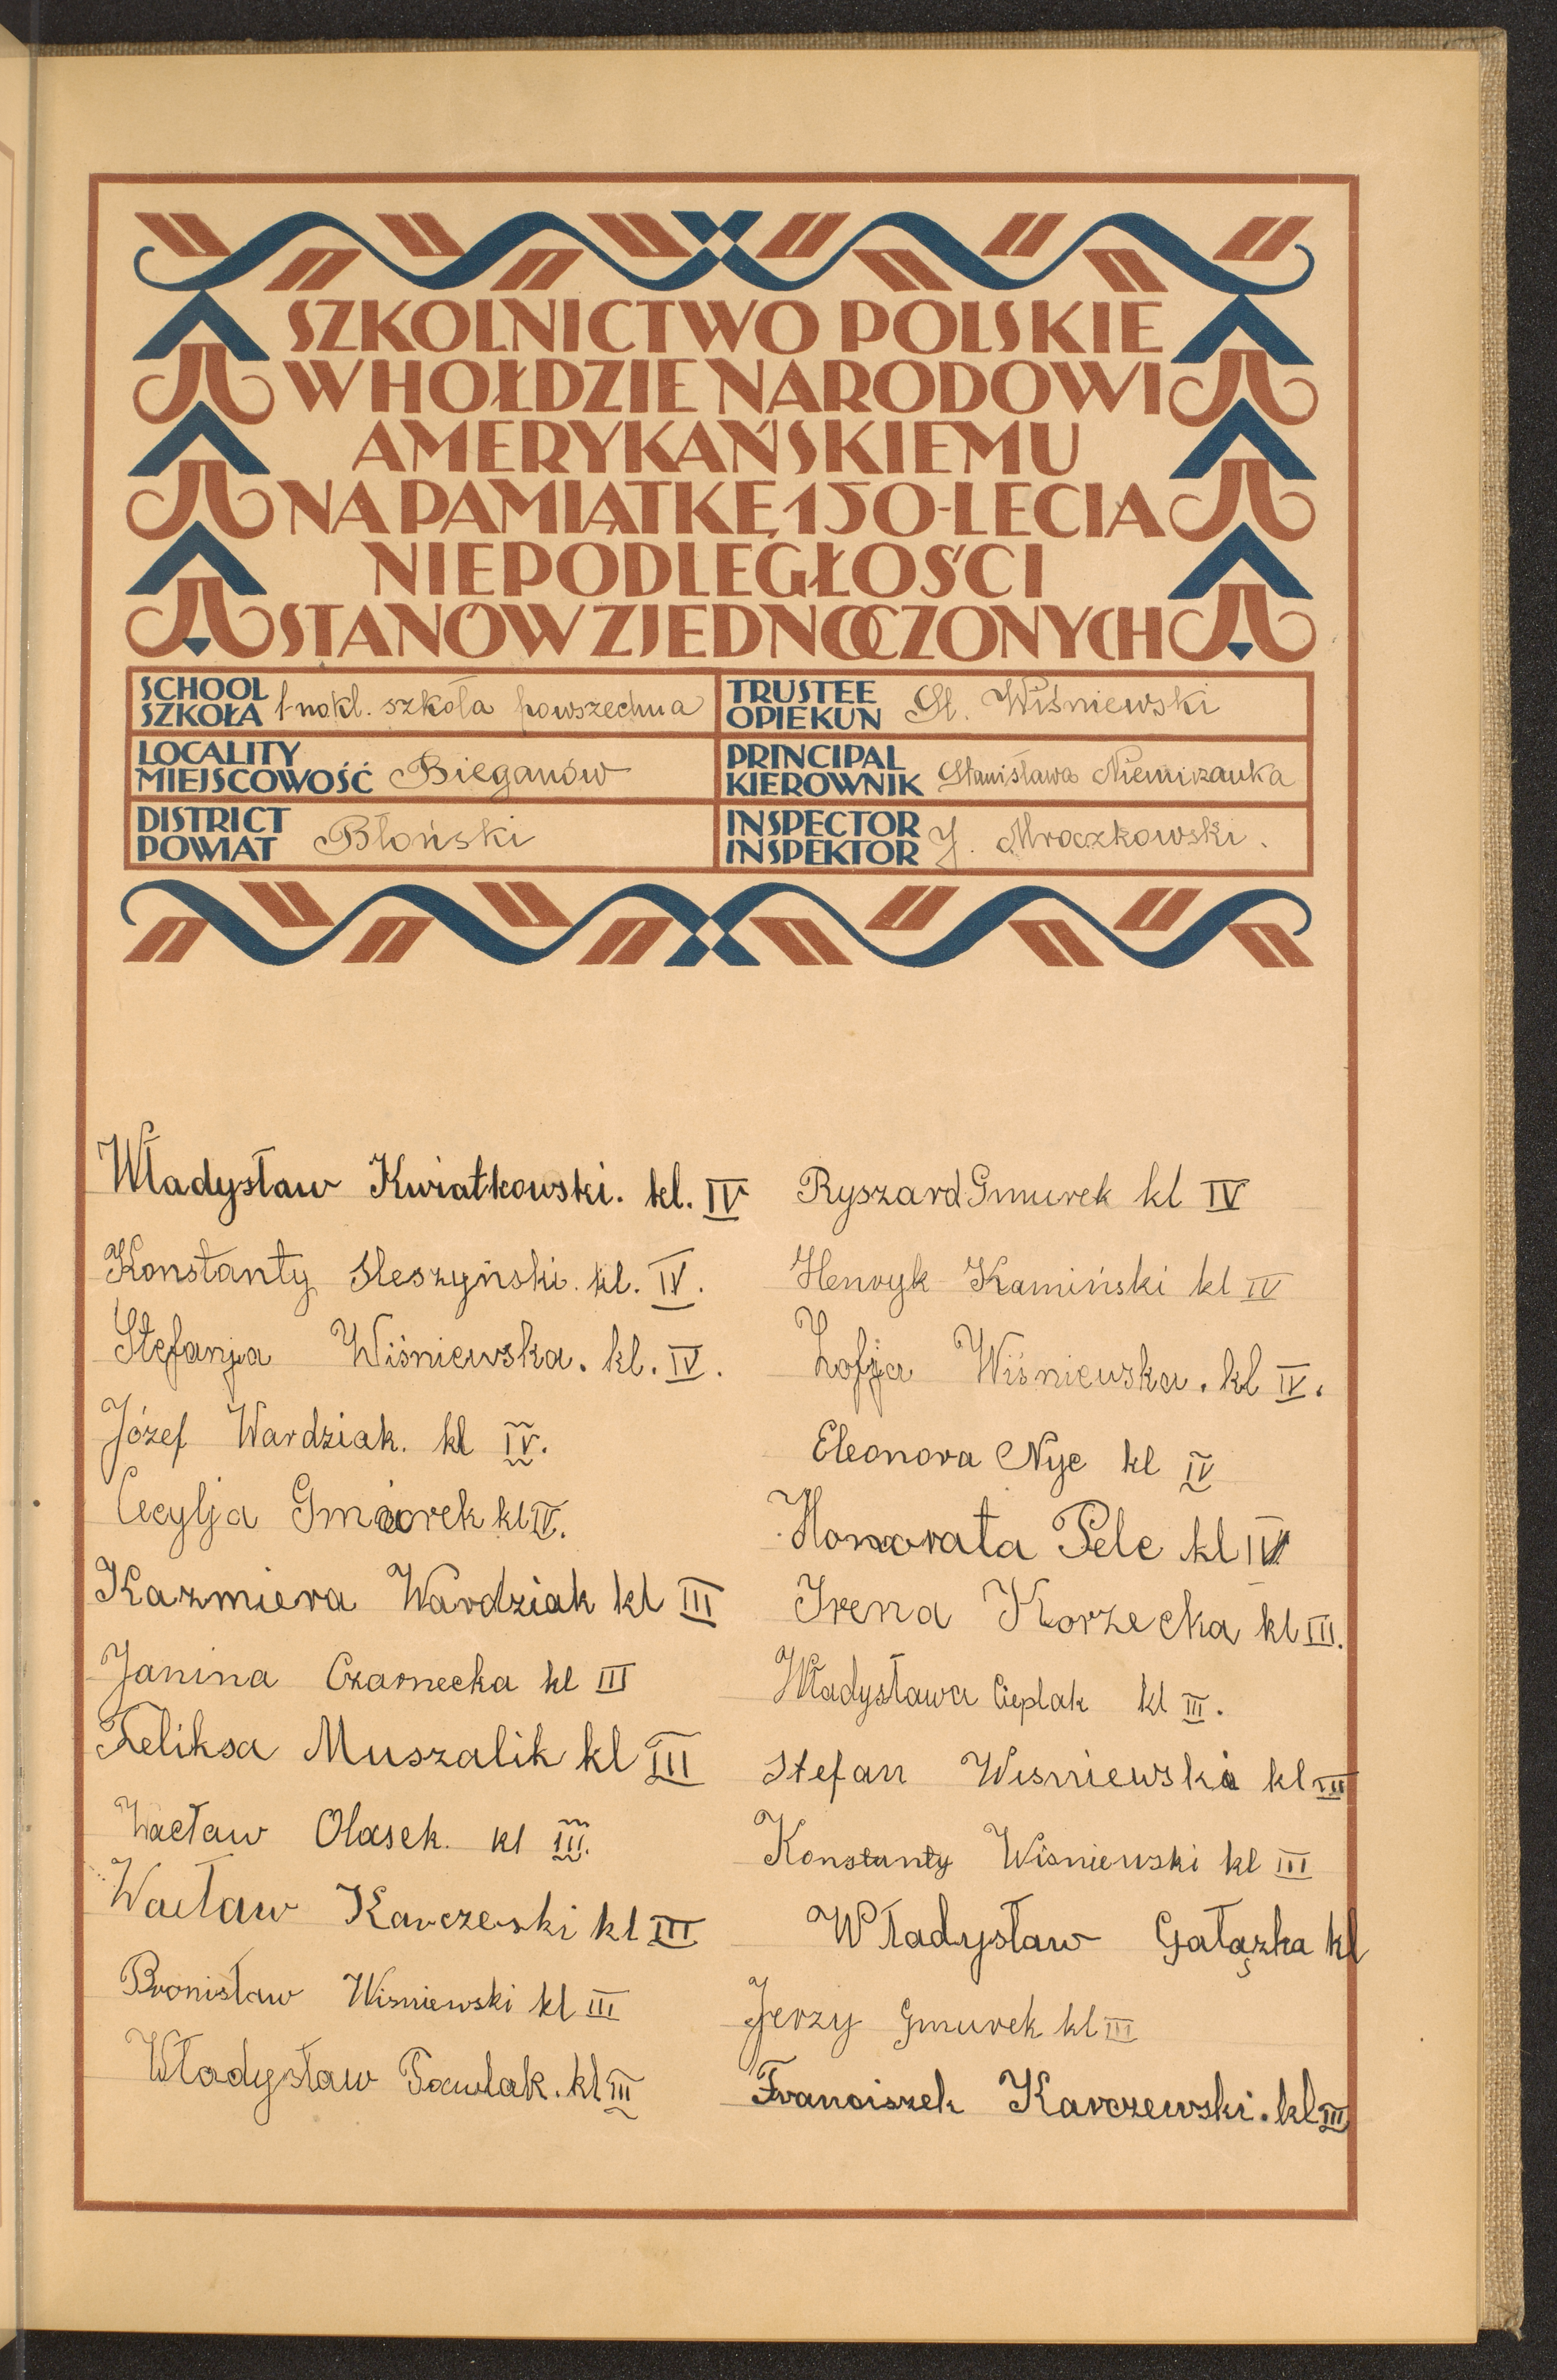 SZKOLNICTWO POLSKIE
W HOŁDZIE NARODOWI
AMERYKAŃSKIEMU
NA PAMIĄTKĘ 150-LECIA
NIEPODLEGŁOŚCI
STANÓW ZJEDNOCZONYCH
SCHOOL
SZKOŁA 1-nokl. szkoła powszechna
TRUSTEE
OPIEKUN St. Wiśniewski
LOCALITY
MIEJSCOWOŚĆ Bieganów
PRINCIPAL
KIEROWNIK Stanisława Niemirzanka
DISTRICT
POWIAT Błoński
INSPECTOR
INSPEKTOR J. Mroczkowski.
Władysław Kwiatkowski. kl. IV
Konstanty Sleszyński. kl. IV.
Stefanja Wiśniewska. kl. IV.
Józef Wardziak. kl IV.
Cecylja Gmiorek kl IV.
Kazmiera Wardziak kl III
Janina Czarnecka kl III
Feliksa Muszalik kl III
Wacław Olasek. kl III.
Wacław Karczeski kl III
Bronisław Wiśniewski kl III
Władysław Pawlak. kl III
Ryszard Gmurek kl IV
Henryk Kamiński kl IV
Zofja Wiśniewska. kl IV.
Eleonora Nyc kl IV
Honorata Pelc kl IV
Irena Korzecka kl III.
Władysława Cieplak kl III.
Stefan Wisniewski kl III
Konstanty Wiśniewski kl III
Władysław Gałązka kl
Jerzy Gmurek kl III
Franciszek Karczewski. kl III